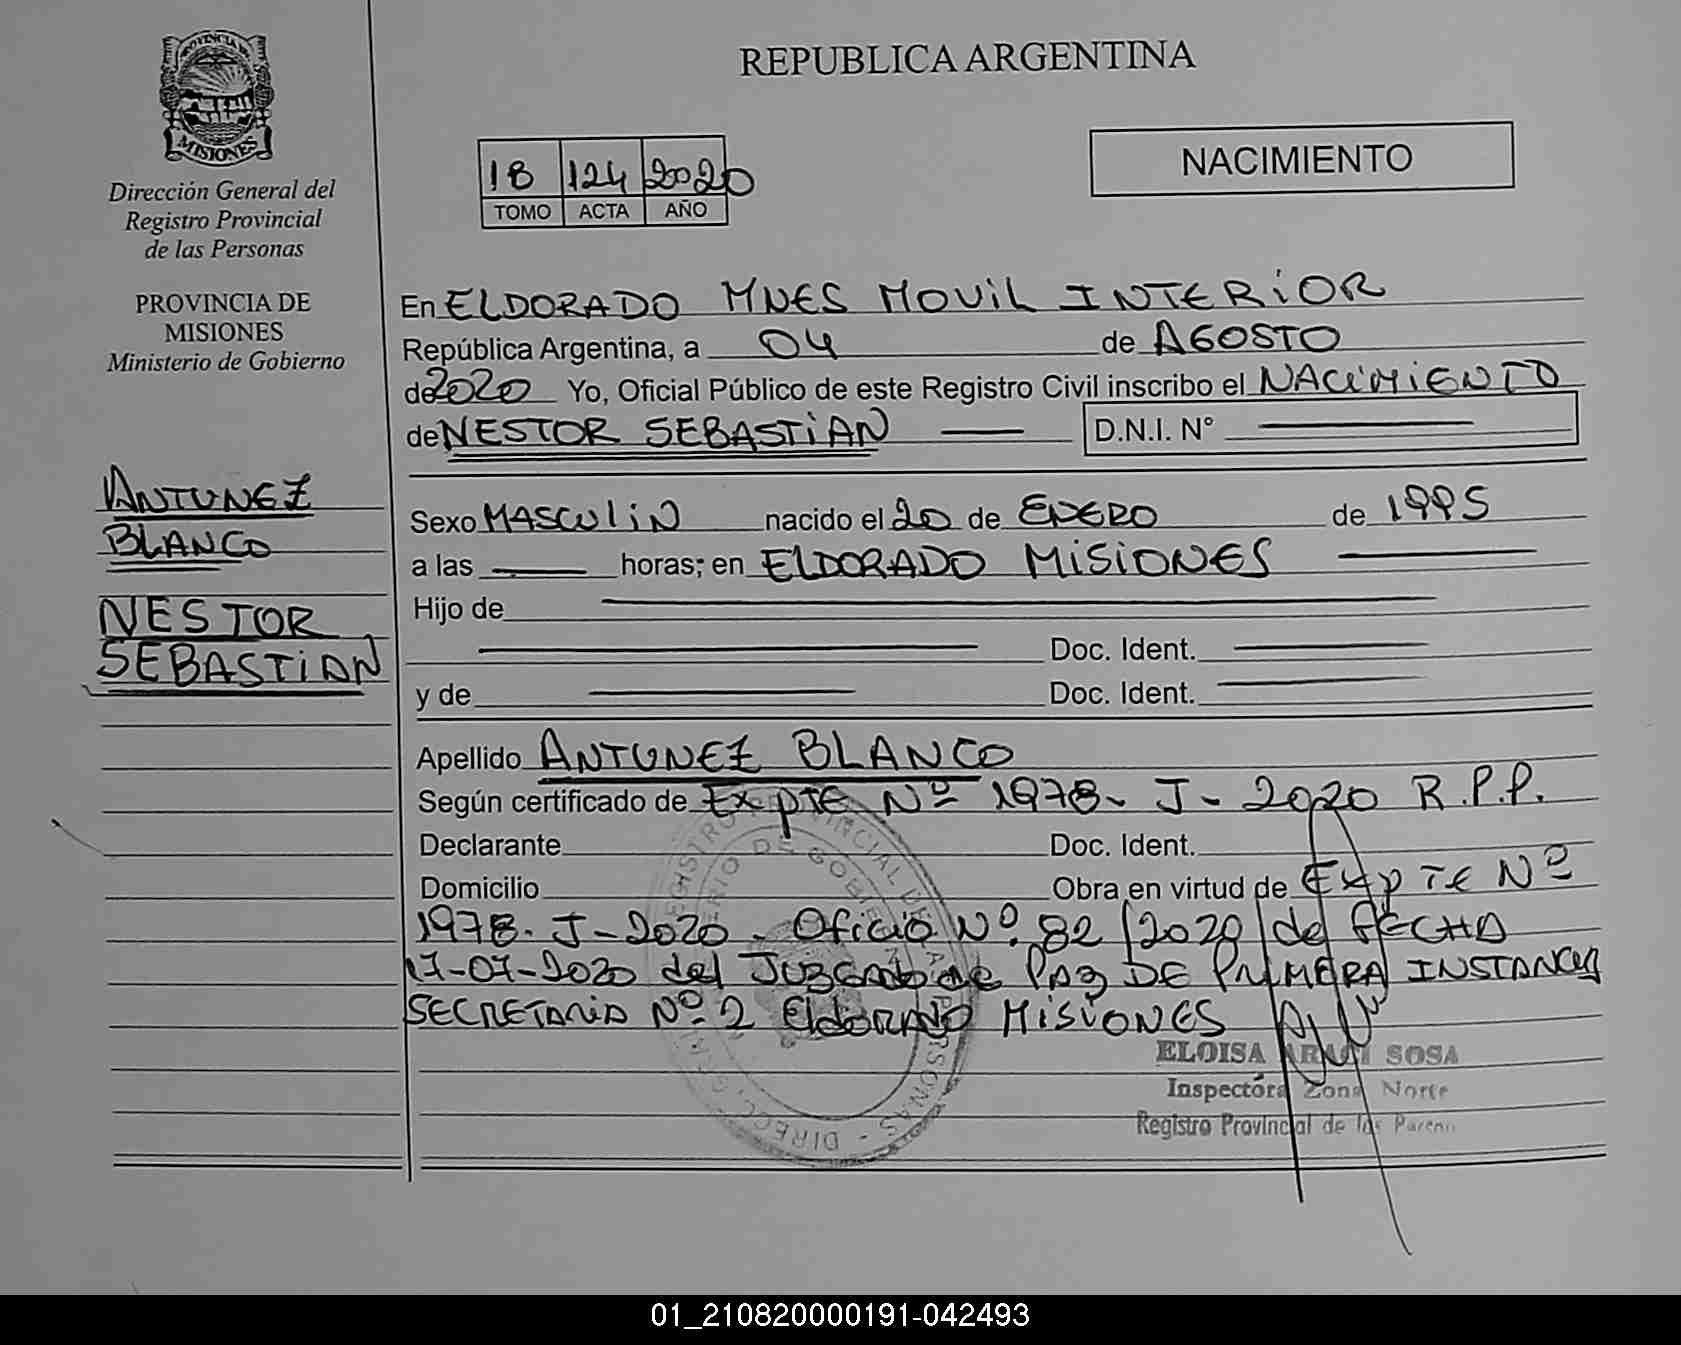 PROVINCIA DE
MISIONES
Dirección General del
Registro Provincial
de las Personas
PROVINCIA DE
MISIONES
Ministerio de Gobierno
ANTUNEZ
BLANCO
NESTOR
SEBASTIAN
REPUBLICA ARGENTINA
18 124 2020
TOMO ACTA AÑO
NACIMIENTO
En ELDORADO MNES MOVIL INTERIOR
República Argentina, a 04 de AGOSTO
de 2020 Yo, Oficial Público de este Registro Civil inscribo el NACIMIENTO
de NESTOR SEBASTIAN D.N.I. N°
Sexo MASCULIN nacido el 20 de ENERO de 1995
a las horas; en ELDORADO MISIONES
Hijo de
Doc. Ident.
y de Doc. Ident.
Apellido ANTUNEZ BLANCO
Según certificado de Expte Nº 1978- J- 2020 R.P.P.
Declarante Doc. Ident.
Domicilio Obra en virtud de Expte Nº
1978- J-2020 - Oficio Nº 82/2020/de FECHA
17-07-2020 del Juzgado de PAZ DE PRIMERA INSTANCIA
SECRETARIA Nº 2 ELDORADO MISIONES
ELOISA ARACI SOSA
Inspectora Zona Norte
Registro Provincial de las
01_210820000191-042493